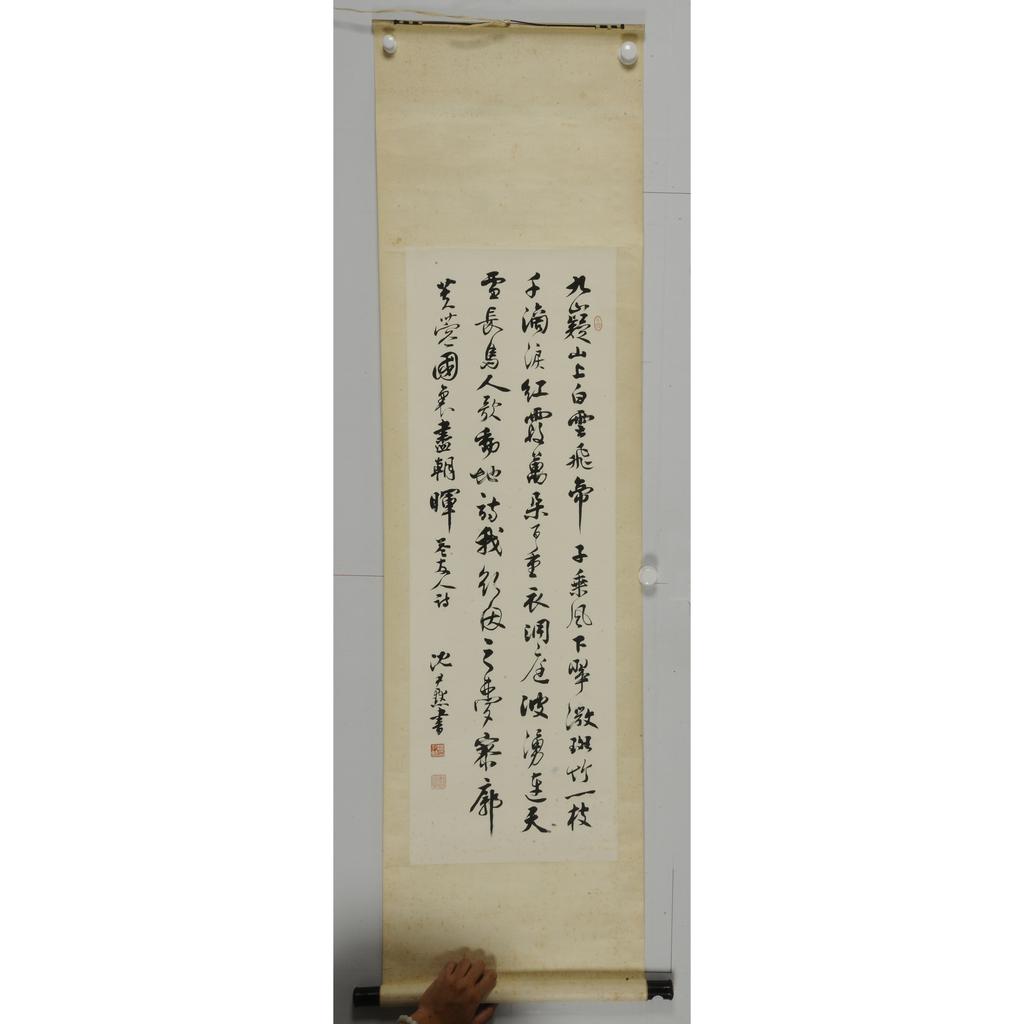 九嶷山上白雲飛帝子乘風下翠微斑竹一枝
千滴淚紅霞萬朵百重衣洞庭波湧連天
雪長島人歌動地詩我欲因之夢寥廓
芙蓉國裏盡朝暉 答友人詩 沈尹默書